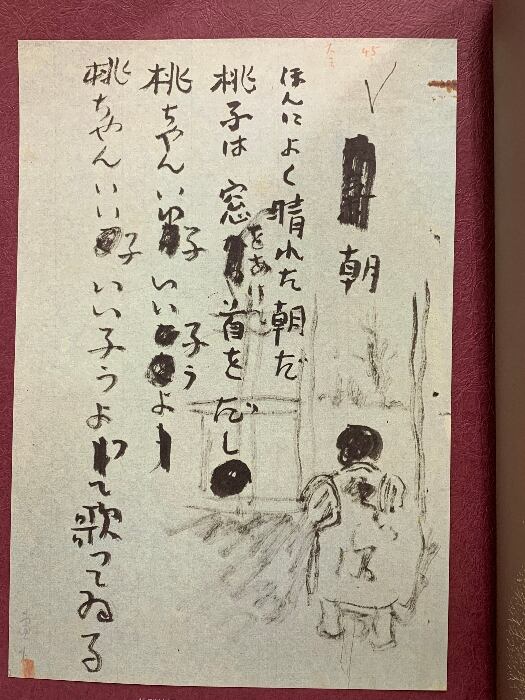 朝
ほんによく晴れた朝だ
桃子は窓をあけて首をだし
桃ちゃんいい子いい子うよ
桃ちゃんいい子いい子うよって歌ってゐる